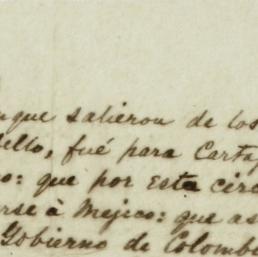 nque salieron de los
ello, fué para Carta
o: que por esta circ
rse à Mejico: que as
Gobierno de Colombi